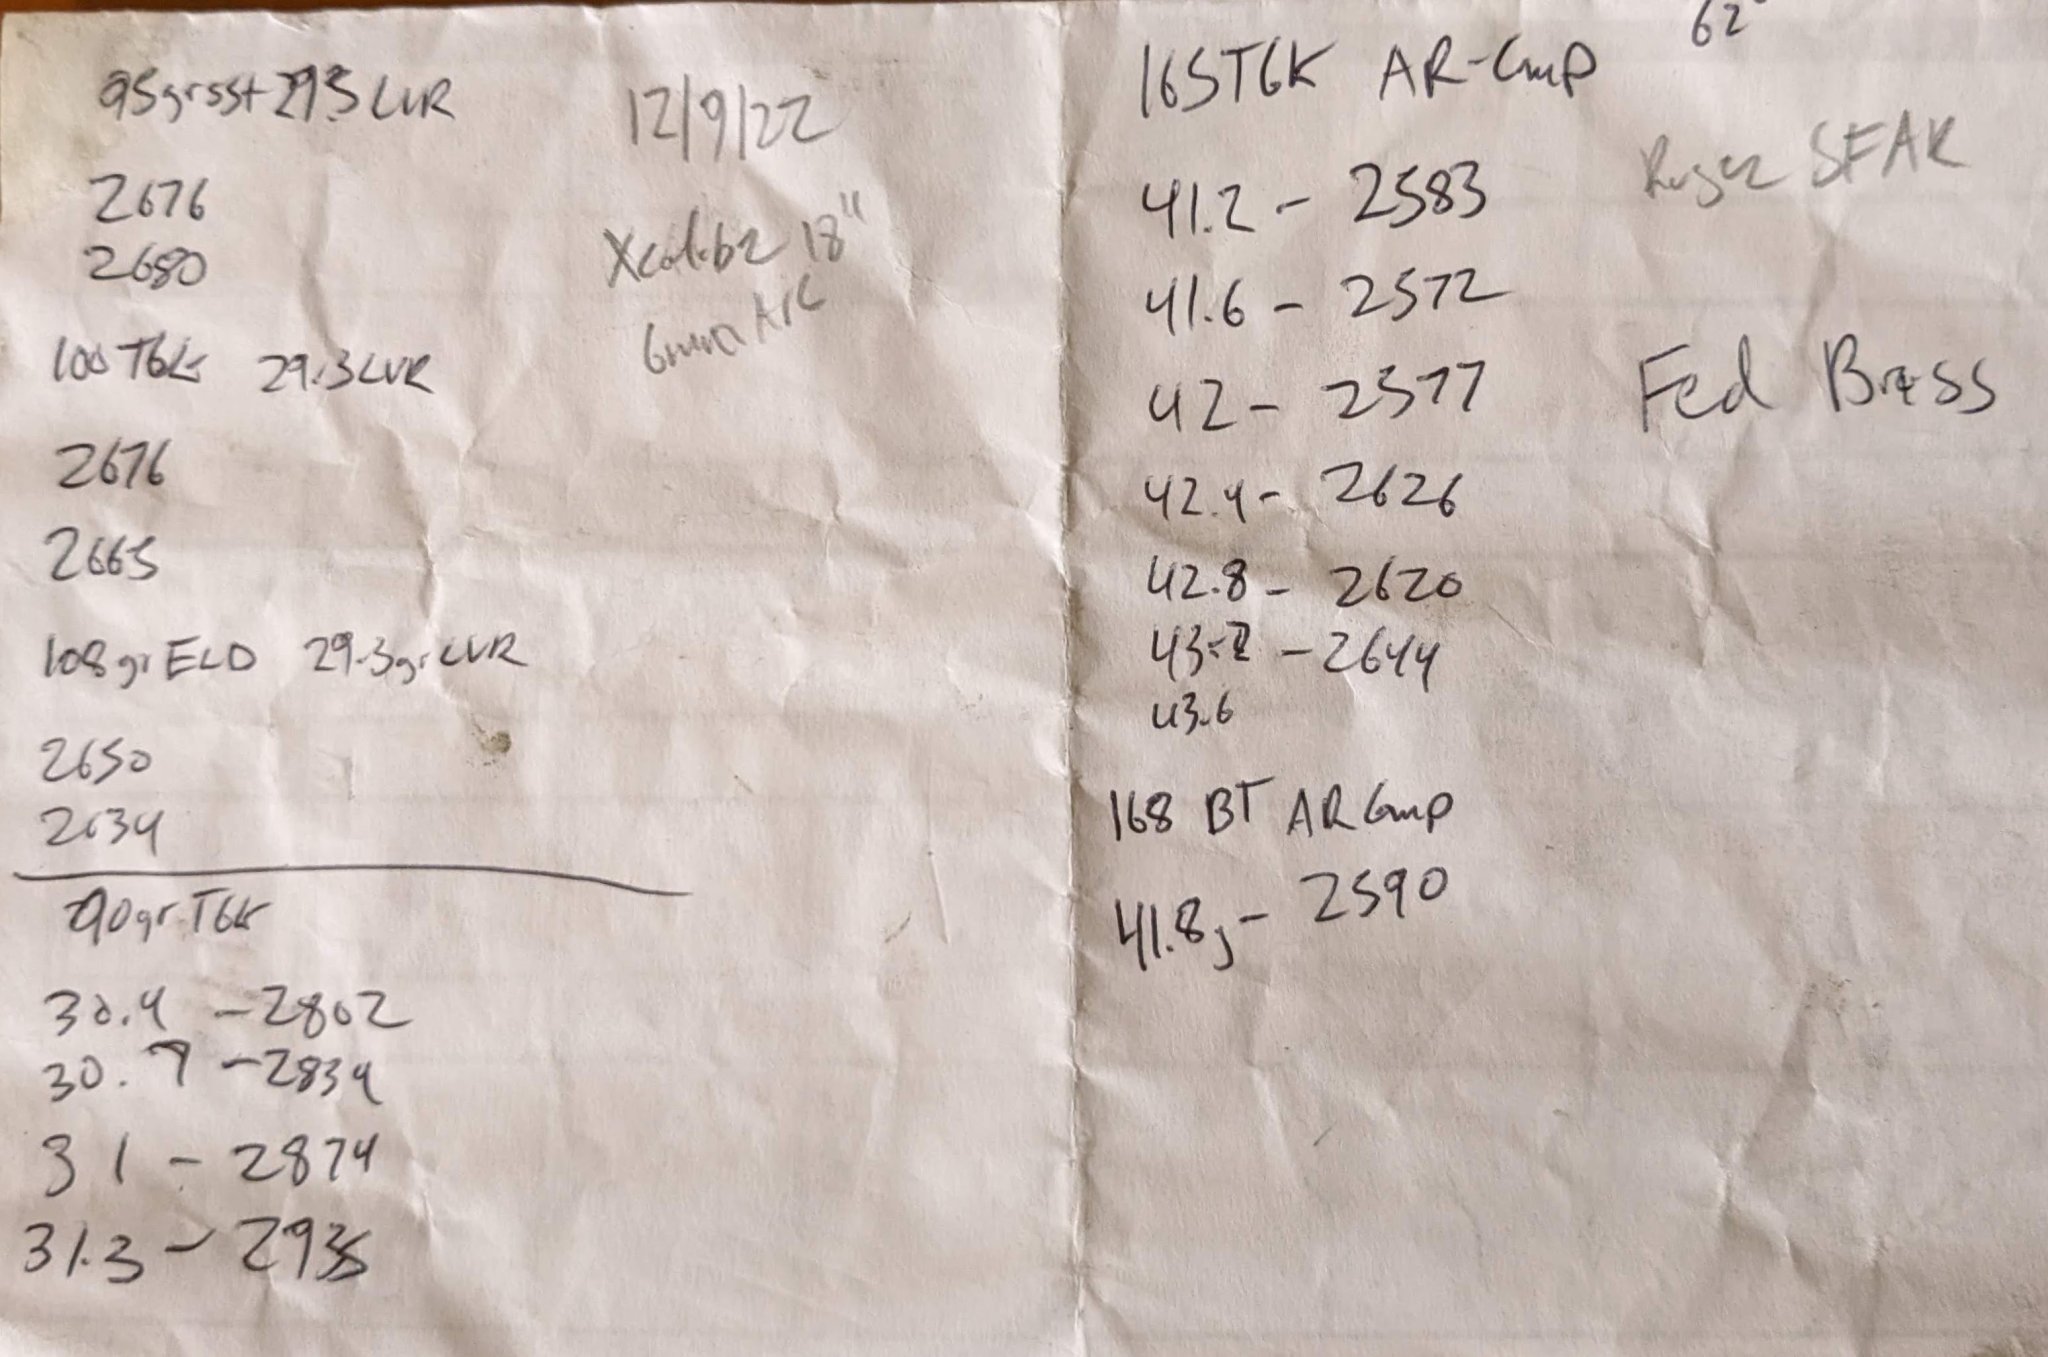 95grsst 29.3 LVR
2676
2680
100 TGK 29.3 LVR
2676
2665
108gr ELD 29.3gr LVR
2650
2634
90gr TGK
30.4 - 2802
30.7 - 2834
31 - 2874
31.3 - 2935
12/9/22
Xcaliber 18"
6mm ARC
62°
165TGK AR-Comp
41.2 - 2583
41.6 - 2572
42 - 2577
42.4 - 2626
42.8 - 2620
43.2 - 2644
43.6
168 BT AR Comp
41.8 - 2590
Ruger SFAR
Fed Brass